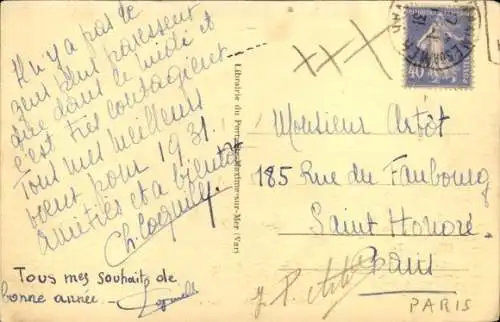 Il n'y a pas de
gens plus paressent
que dans le midi et
c'est très contagieux
Tous mes meilleurs
vœux pour 1931.
amitiés et a bientôt
Tous mes souhaits de
bonne année -
Librairie du Port
Maxime-sur-Mer (Var)
40
Monsieur Artôt
185 Rue du Faubourg
Saint Honoré
Paris
PARIS